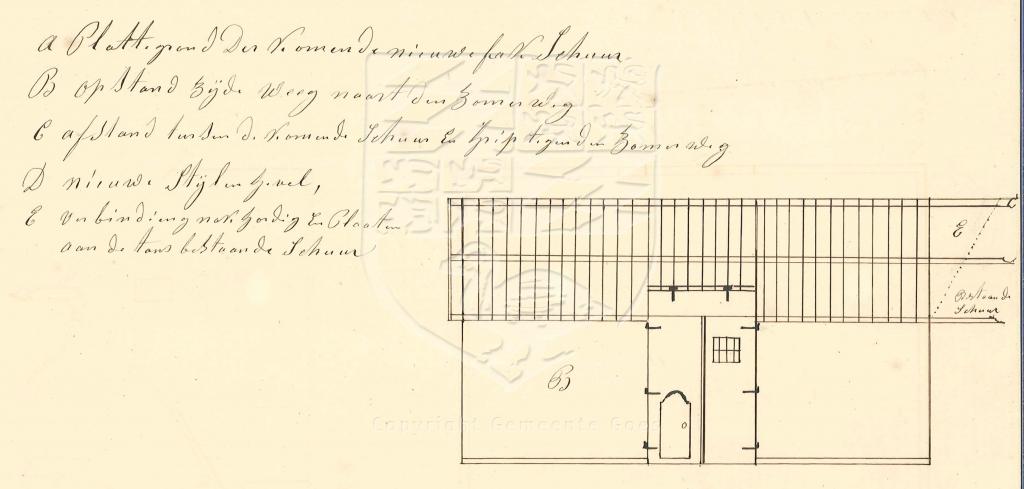 A Plattegrond Der komende nieuwe Schuur
B opstand Zijde Weeg naart den Zomerweg
C afstand tussen de komende Schuur En tegen den Zomerweg
D nieuwe Stijlen Gevel,
E verbindieng En Plaaten
aan de tans bestaande Schuur
E
Bestaande
Schuur
B
Copyright Gemeente Goes